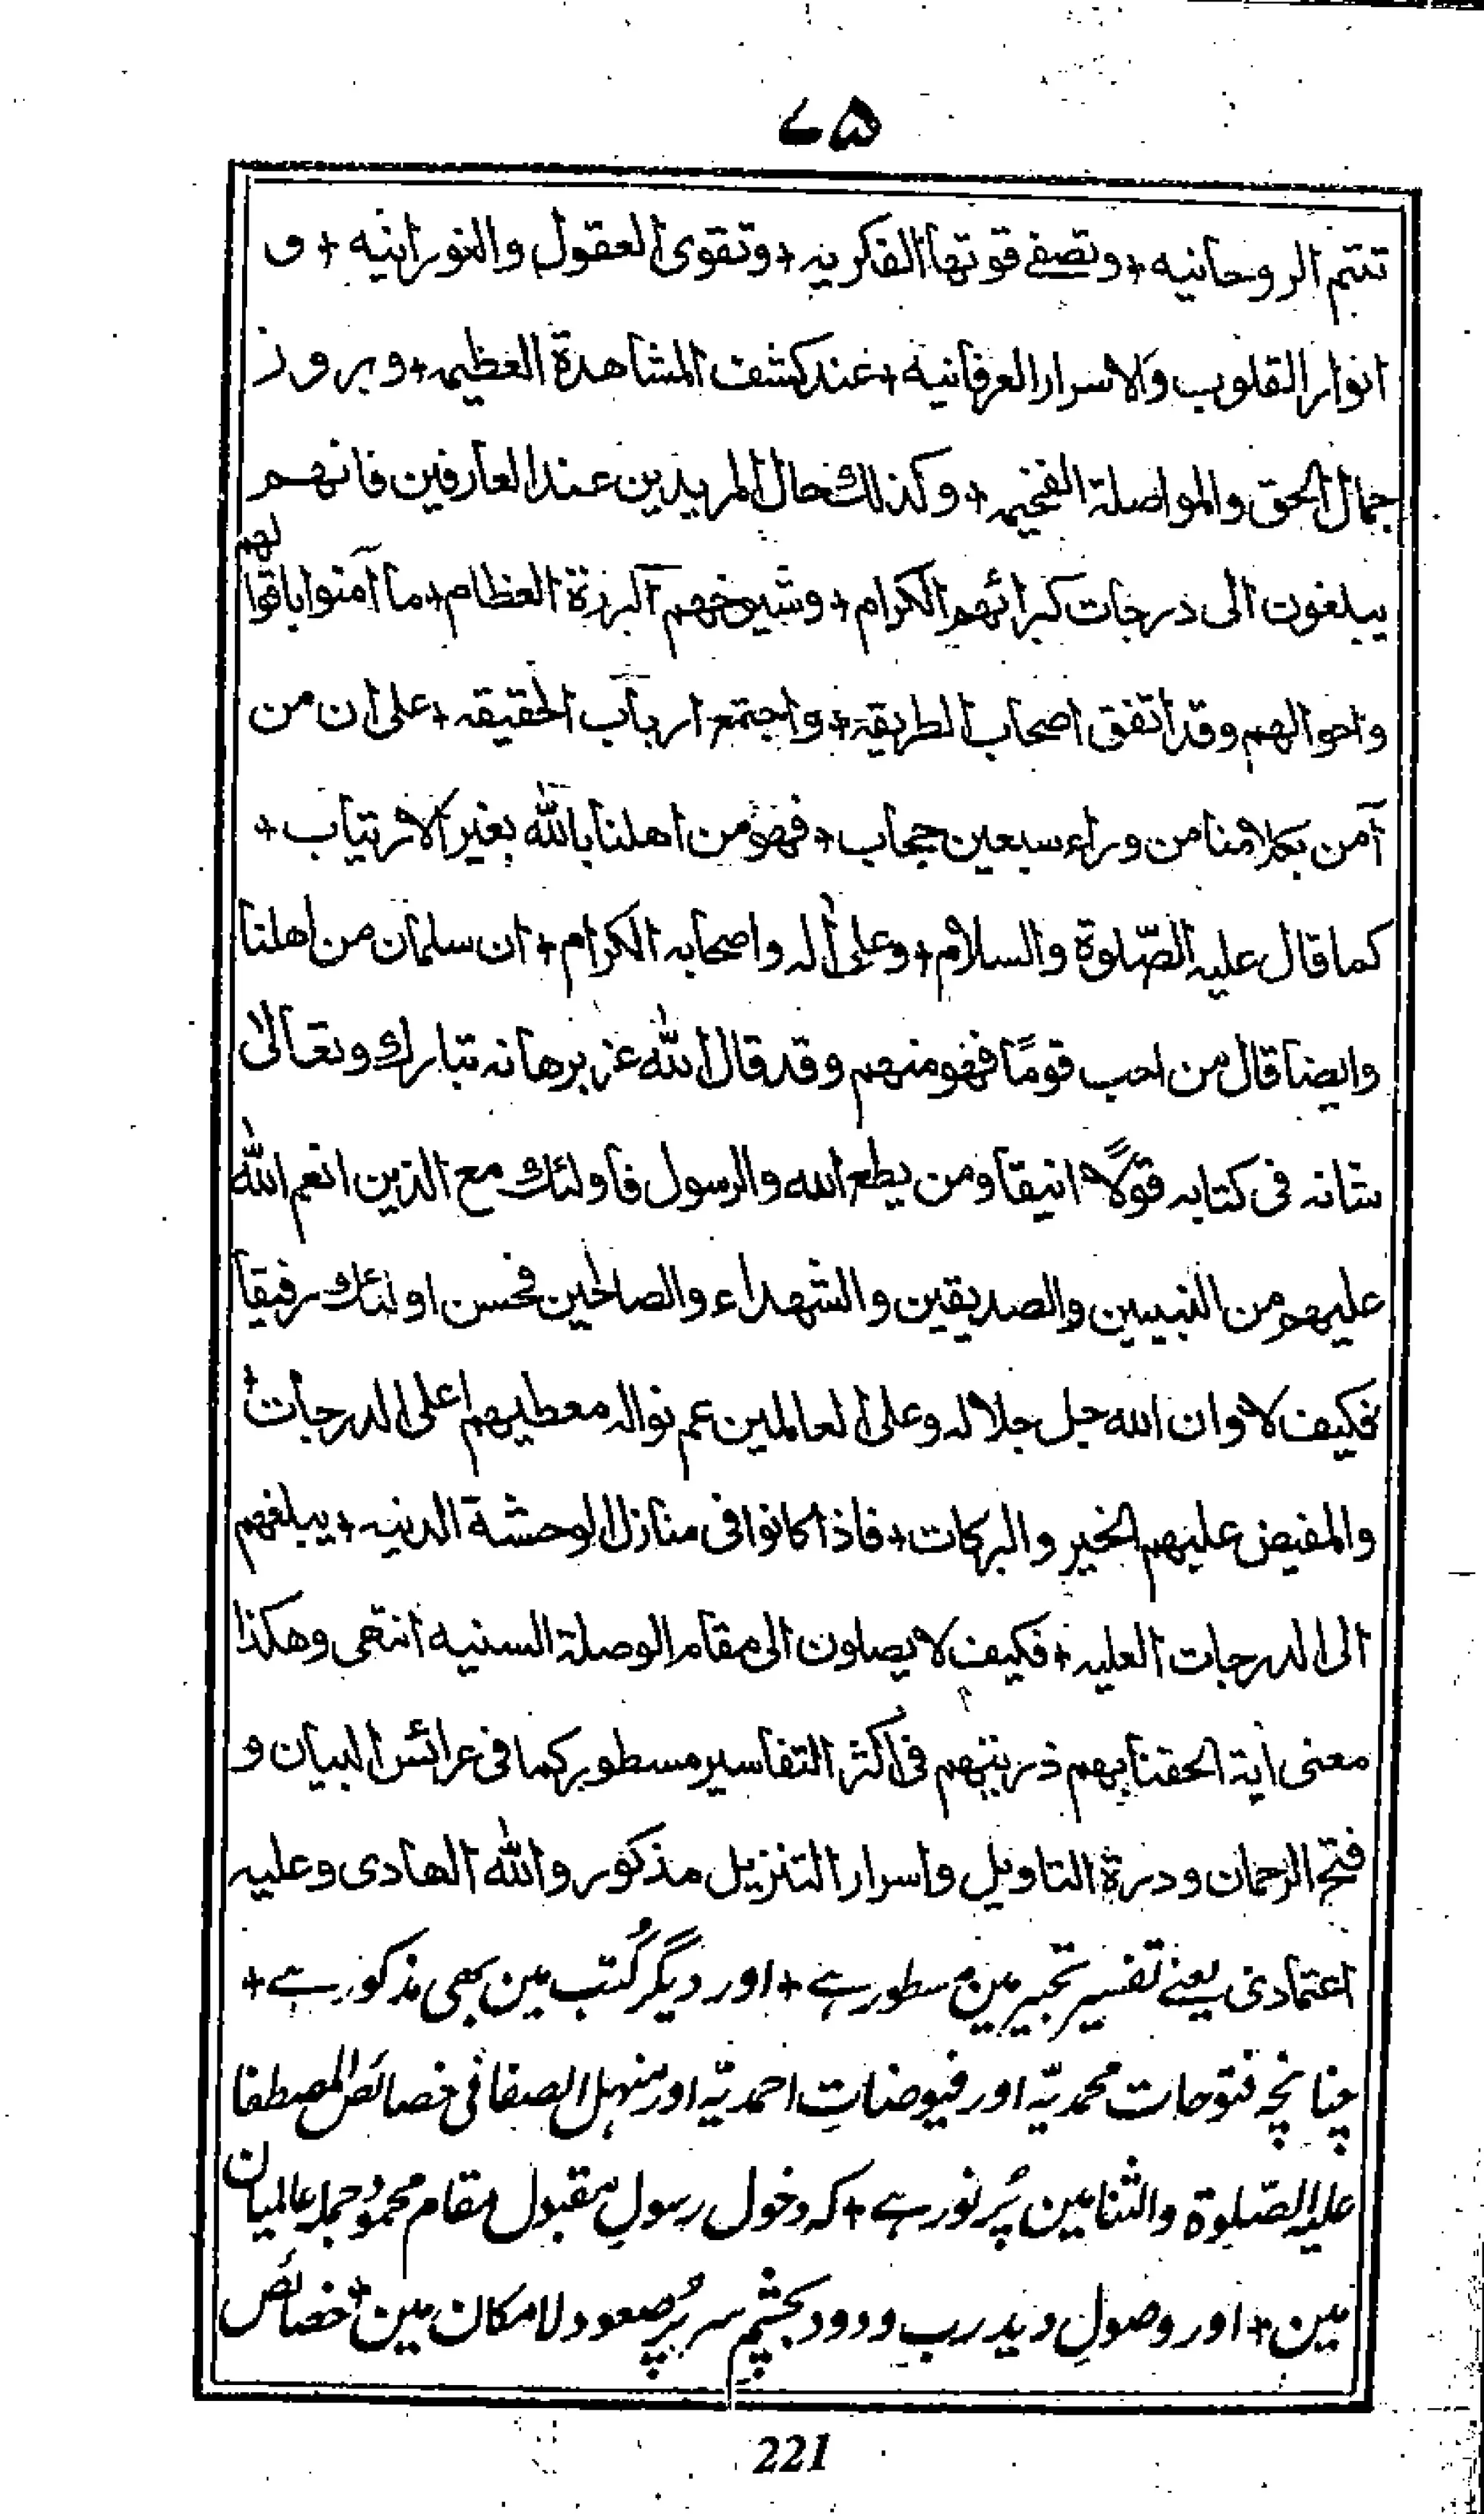 ۷۵
تتم الروحانیه + وتصفے قوتها الفاکریه + وتقوی العقول والنورانیه + و
انوار القلوب والاسرار العرفانیه + عند کشف المشاهدة العظیمه + وبروز
جمال الحق والمواصلة الفخیمه + وکذلك حال المریدین عند العارفین فانهم
یبلغون الی درجات کبرائهم الکرام + وشیوخهم البررة العظام + ما آمنوا باقوالهم
واحوالهم وقد اتفق اصحاب الطریقه + واجتمع ارباب الحقیقه + علی ان من
آمن بکلامنا من وراء سبعین حجاب + فهو من اهلنا بالله بغیر الارتیاب +
کما قال علیه الصّلوة والسلام + وعلی آله واصحابه الکرام + ان سلمان من اهلنا
وایضا قال من احب قومًا فهو منهم وقد قال الله عز برهانه تبارك وتعالی
شانه فی کتابه قولًا انیقا ومن یطع الله والرسول فاولئك مع الذین انعم الله
علیهم من النبیین والصدیقین والشهداء والصالحین فحسن اولئك رفیقا
فکیف لا وان الله جل جلاله وعلی العالمین عم نواله معطیهم اعلی الدرجات +
والمفیض علیهم الخیر والبرکات + فاذا کانوا فی منازل الوحشة الدنیه + یبلغهم
الی الدرجات العلیه + فکیف لا یصلون الی مقام الوصلة السنیه انتهی وهکذا
معنی ایة الحقنا بهم ذریتهم فی اکثر التفاسیر مسطور کما فی عرائس البیان و
فتح الرحمان ودرة التاویل واسرار التنزیل مذکور والله الهادی وعلیه
اعتمادی یعنے تفسیر تجیر مین مسطور ہے + اور دیگر کُتب مین بھی مذکور ہے +
چنانچہ فتوحات محمدیّہ اور فیوضاتِ احمدیّہ اور منہل الصفا فی خصائص المصطفا
علیہ الصّلوة والثنا مین پُر نور ہے + کہ دخول رسولِ مقبول مقام محمود حمد عالمیان
مین + اور وصولِ دید رب ودود بچشمِ سر پُر صعود لامکان مین + خصائص
221